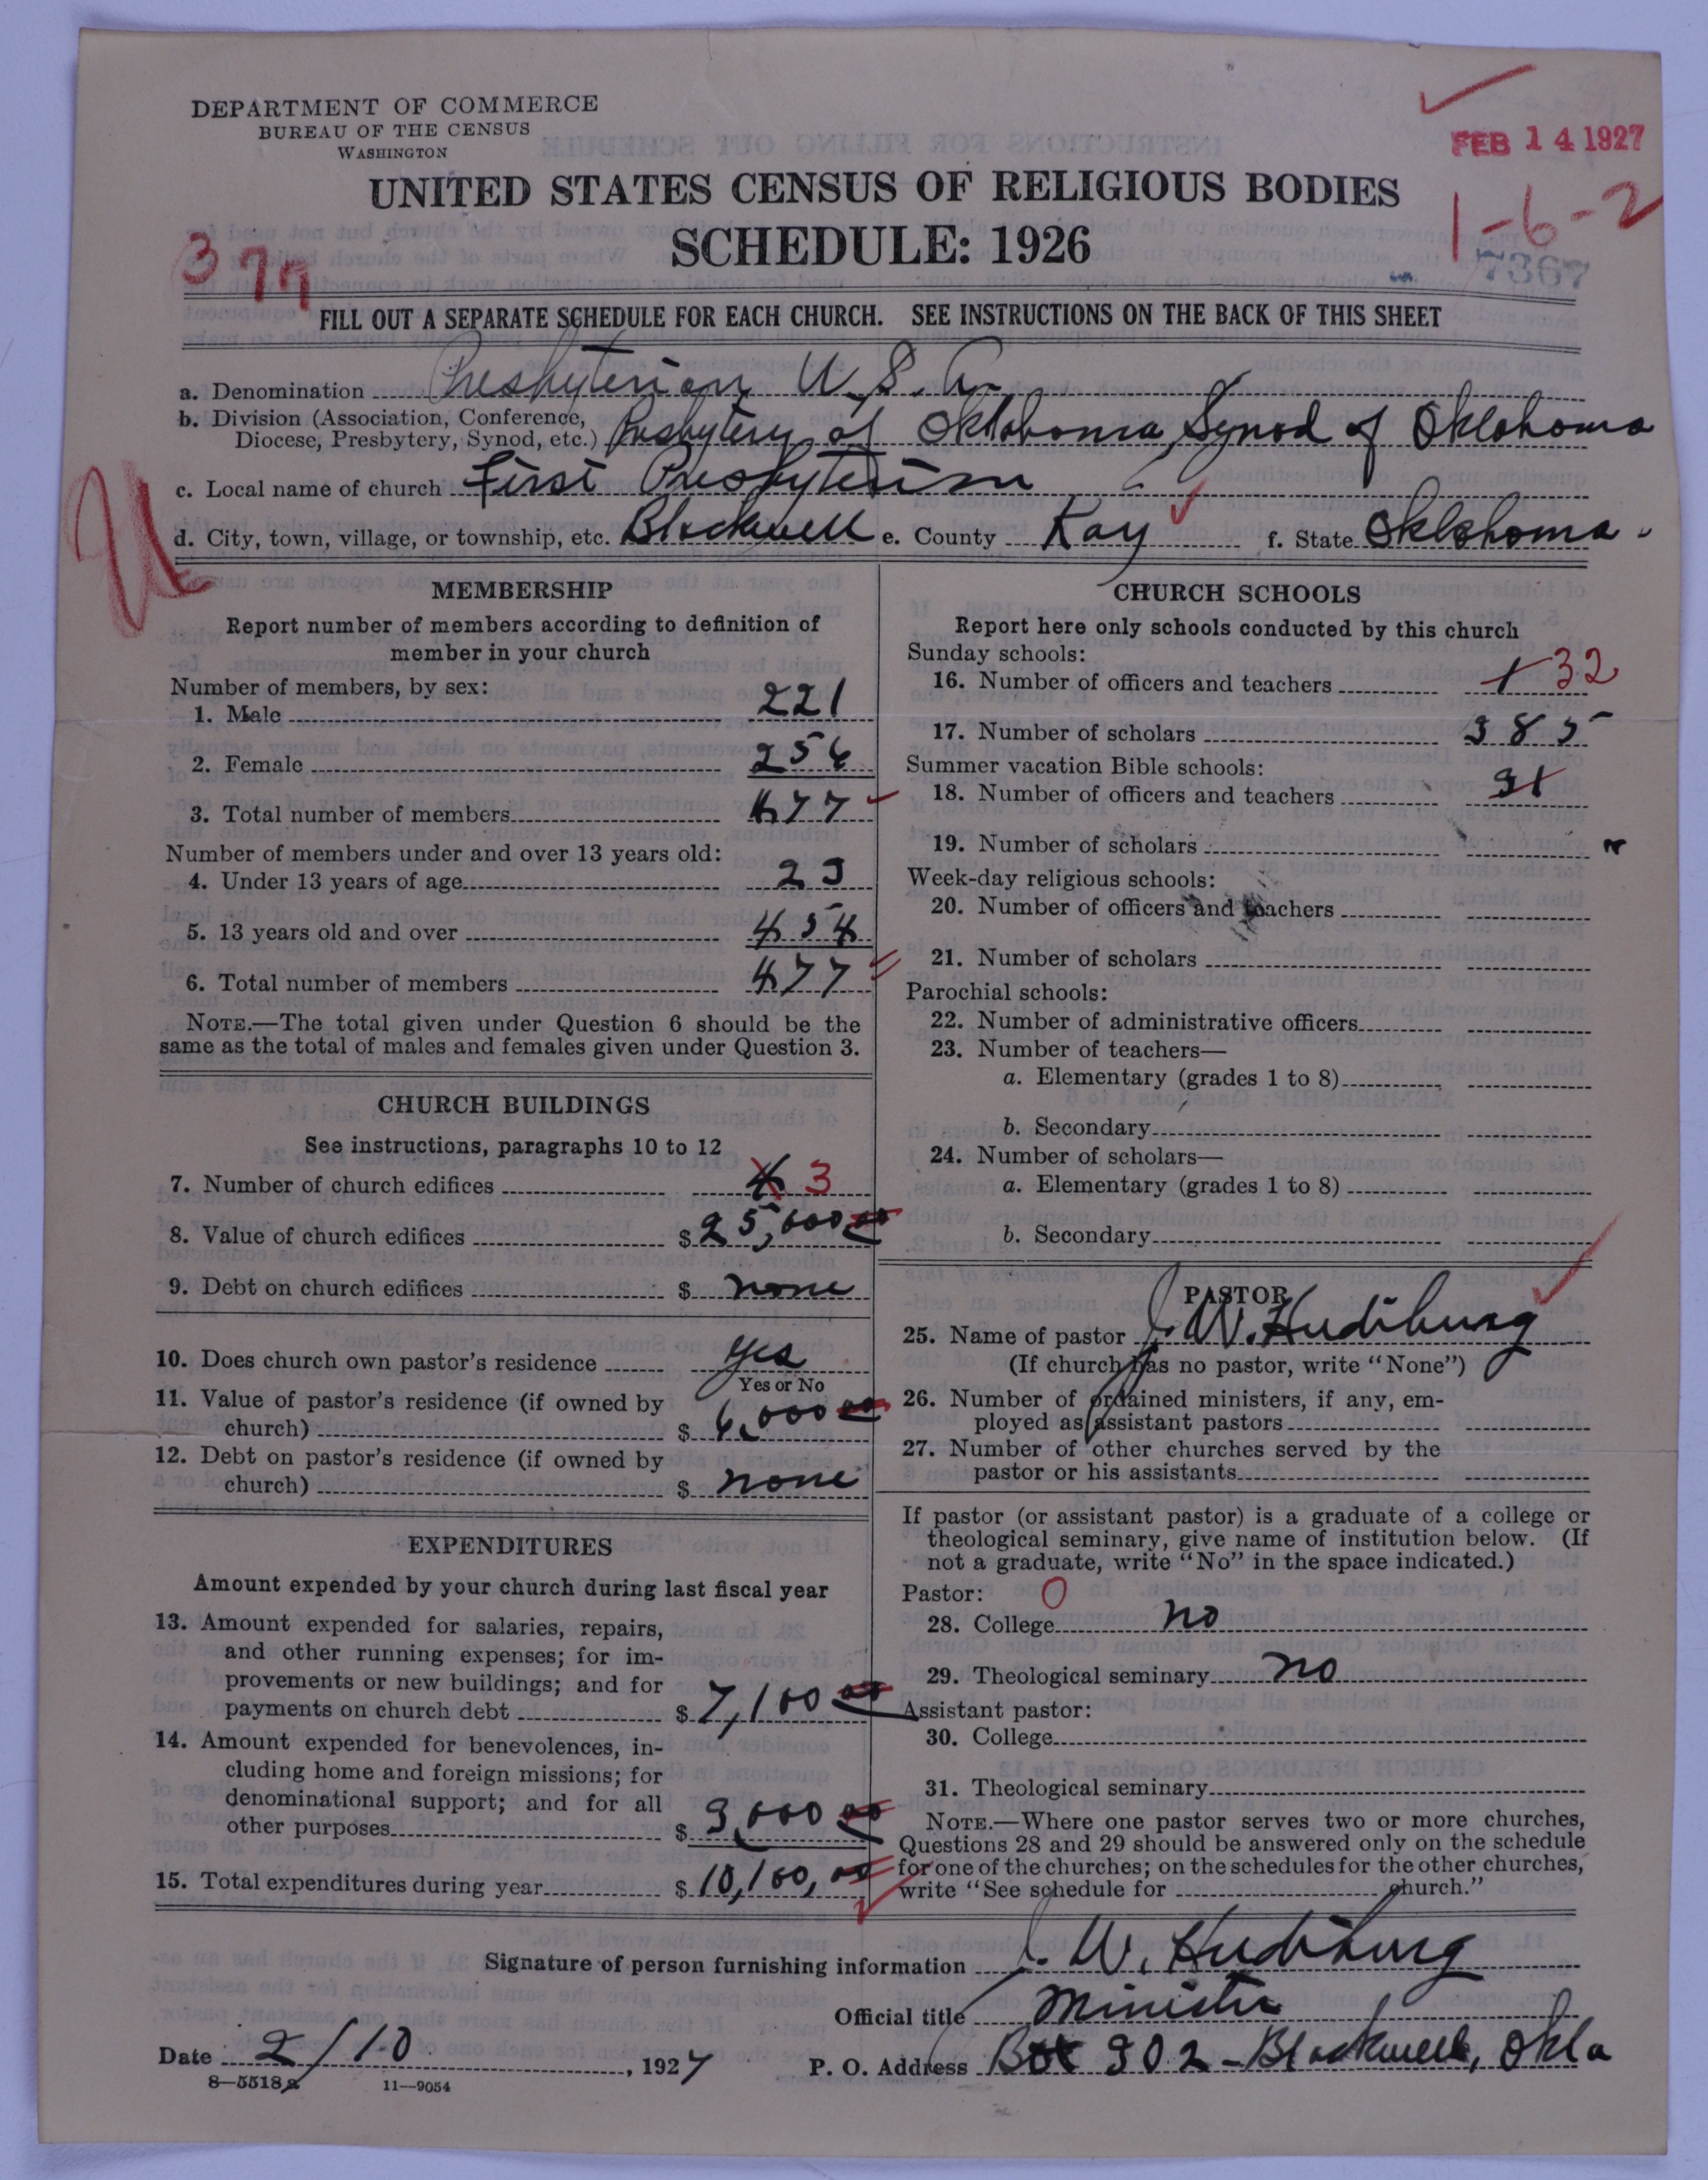 DEPARTMENT OF COMMERCE
BUREAU OF THE CENSUS
WASHINGTON
FEB 14 1927
UNITED STATES CENSUS OF RELIGIOUS BODIES
1-6-2
SCHEDULE: 1926
377
7367
FILL OUT A SEPARATE SCHEDULE FOR EACH CHURCH. SEE INSTRUCTIONS ON THE BACK OF THIS SHEET
a. Denomination Presbyterian U. S. A.
b. Division (Association, Conference,
Diocese, Presbytery, Synod, etc.) Presbytery of Oklahoma, Synod of Oklahoma
c. Local name of church First Presbyterian
d. City, town, village, or township, etc. Blackwell e. County Kay f. State Oklahoma.
MEMBERSHIP
Report number of members according to definition of
member in your church
Number of members, by sex:
1. Male 221
2. Female 256
3. Total number of members 477
Number of members under and over 13 years old:
4. Under 13 years of age 23
5. 13 years old and over 454
6. Total number of members 477
NOTE.—The total given under Question 6 should be the
same as the total of males and females given under Question 3.
CHURCH BUILDINGS
See instructions, paragraphs 10 to 12
7. Number of church edifices 4 3
8. Value of church edifices $ 25,000 00
9. Debt on church edifices $ none
10. Does church own pastor's residence Yes
Yes or No
11. Value of pastor's residence (if owned by
church) $ 6,000 00
12. Debt on pastor's residence (if owned by
church) $ none
EXPENDITURES
Amount expended by your church during last fiscal year
13. Amount expended for salaries, repairs,
and other running expenses; for im-
provements or new buildings; and for
payments on church debt $ 7,100 00
14. Amount expended for benevolences, in-
cluding home and foreign missions; for
denominational support; and for all
other purposes $ 3,000 00
15. Total expenditures during year $ 10,100, 00
CHURCH SCHOOLS
Report here only schools conducted by this church
Sunday schools:
16. Number of officers and teachers 1 32
17. Number of scholars 385
Summer vacation Bible schools:
18. Number of officers and teachers 31
19. Number of scholars
Week-day religious schools:
20. Number of officers and teachers
21. Number of scholars
Parochial schools:
22. Number of administrative officers
23. Number of teachers—
a. Elementary (grades 1 to 8)
b. Secondary
24. Number of scholars—
a. Elementary (grades 1 to 8)
b. Secondary
PASTOR
25. Name of pastor J. W. Hudiburg
(If church has no pastor, write "None")
26. Number of ordained ministers, if any, em-
ployed as assistant pastors
27. Number of other churches served by the
pastor or his assistants
If pastor (or assistant pastor) is a graduate of a college or
theological seminary, give name of institution below. (If
not a graduate, write "No" in the space indicated.)
Pastor: O
28. College no
29. Theological seminary no
Assistant pastor:
30. College
31. Theological seminary
NOTE.—Where one pastor serves two or more churches,
Questions 28 and 29 should be answered only on the schedule
for one of the churches; on the schedules for the other churches,
write "See schedule for church."
Signature of person furnishing information J. W. Hudiburg
Official title Minister
Date 2/10, 1927 P. O. Address Box 302 - Blackwell, Okla
8-5518a 11-9054